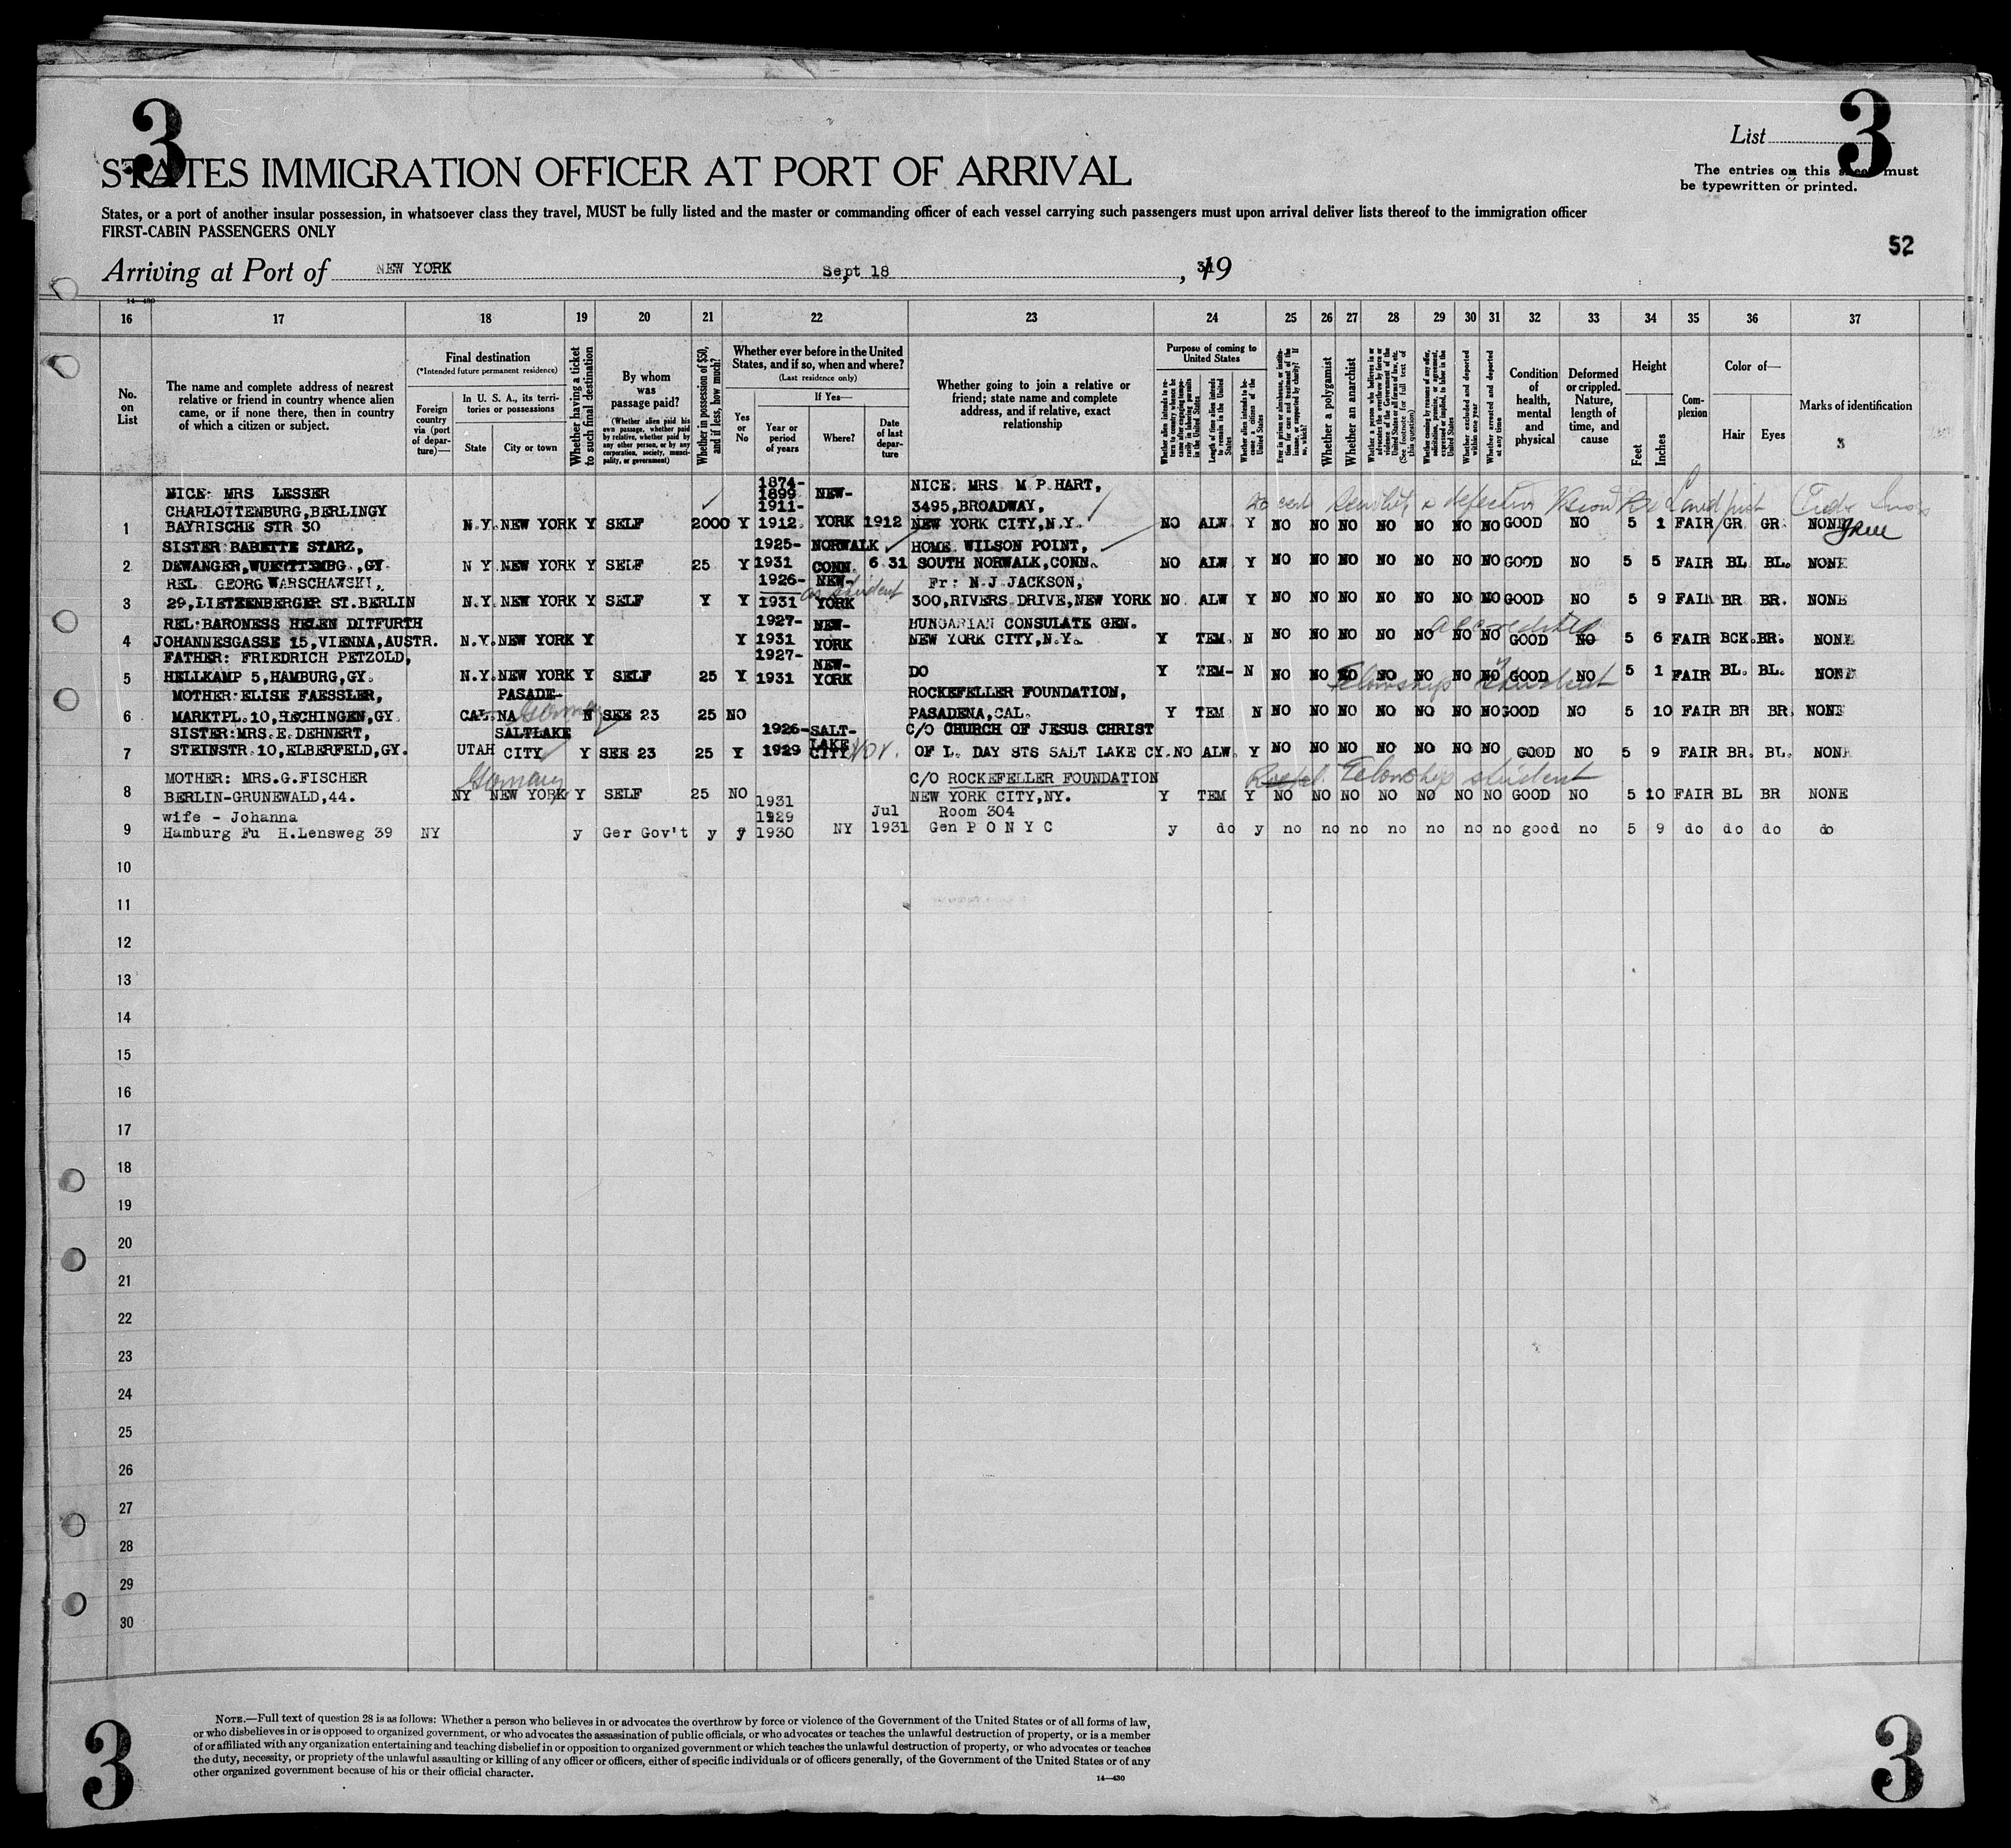 3
3
List
STATES IMMIGRATION OFFICER AT PORT OF ARRIVAL
The entries on this sheet must
be typewritten or printed.
States, or a port of another insular possession, in whatsoever class they travel, MUST be fully listed and the master or commanding officer of each vessel carrying such passengers must upon arrival deliver lists thereof to the immigration officer
FIRST-CABIN PASSENGERS ONLY
52
Arriving at Port of NEW YORK Sept 18, 19 31
14—430
16 17 18 19 20 21 22 23 24 25 26 27 28 29 30 31 32 33 34 35 36 37
No. on List
The name and complete address of nearest relative or friend in country whence alien came, or if none there, then in country of which a citizen or subject.
Final destination
(*Intended future permanent residence)
Foreign country via (port of departure)—
In U. S. A., its territories or possessions
State
City or town
Whether having a ticket to such final destination
By whom was passage paid?
(Whether alien paid his own passage, whether paid by relative, whether paid by any other person, or by any corporation, society, municipality, or government)
Whether in possession of $50, and if less, how much?
Whether ever before in the United States, and if so, when and where?
(Last residence only)
Yes or No
If Yes—
Year or period of years
Where?
Date of last departure
Whether going to join a relative or friend; state name and complete address, and if relative, exact relationship
Purpose of coming to United States
Length of time alien intends to remain in the United States
Whether alien intends to become a citizen of the United States
Whether a polygamist
Whether an anarchist
Whether excluded and deported within one year
Whether arrested and deported at any time
Condition of health, mental and physical
Deformed or crippled. Nature, length of time, and cause
Height
Feet
Inches
Complexion
Color of—
Hair
Eyes
Marks of identification
3
NICE: MRS LESSER 1874- NICE. MRS M.P.HART,
CHARLOTTENBURG,BERLINGY 1899 NEW- 1911- 3495,BROADWAY,
1 BAYRISCHE STR 30 N.Y. NEW YORK Y SELF 2000 Y 1912 YORK 1912 NEW YORK CITY,N.Y. NO ALW Y NO NO NO NO NO NO NO GOOD NO 5 1 FAIR GR GR. NONE
SISTER:BABETTE STARZ, 1925- NORWALK HOME. WILSON POINT,
2 DEWANGER,WUERTTEMBG.,GY N Y NEW YORK Y SELF 25 Y 1931 CONN. 6 31 SOUTH NORWALK,CONN. NO ALW Y NO NO NO NO NO NO NO GOOD NO 5 5 FAIR BL. BL. NONE
REL GEORG WARSCHAWSKI, 1926- NEW- as student Fr: N.J.JACKSON,
3 29,LIETZENBERGER ST.BERLIN N.Y. NEW YORK Y SELF Y Y 1931 YORK 300,RIVERS DRIVE,NEW YORK NO. ALW Y NO NO NO NO NO NO NO GOOD NO 5 9 FAIR BR BR. NONE
REL:BARONESS HELEN DITFURTH 1927- NEW- HUNGARIAN CONSULATE GEN. accredited
4 JOHANNESGASSE 15,VIENNA,AUSTR. N.Y. NEW YORK Y Y 1931 YORK NEW YORK CITY,N.Y. Y TEM. N NO NO NO NO NO NO NO GOOD NO 5 6 FAIR BCK. BR. NONE
FATHER: FRIEDRICH PETZOLD, 1927- NEW-
5 HELLKAMP 5,HAMBURG,GY. N.Y. NEW YORK Y SELF 25 Y 1931 YORK DO Y TEM- N NO NO NO NO NO NO NO GOOD NO 5 1 FAIR BL. BL. NONE
MOTHER:ELISE FAESSLER, PASADE- ROCKEFELLER FOUNDATION, Felowship student
6 MARKTPL.10,HECHINGEN,GY CAL. NA Germany N SEE 23 25 NO PASADENA,CAL. Y TEM N NO NO NO NO NO NO NO GOOD NO 5 10 FAIR BR BR. NONE
SISTER:MRS.E.DEHNERT, SALTLAKE 1926- SALT- C/O CHURCH OF JESUS CHRIST
7 STEINSTR.10,ELBERFELD,GY. UTAH CITY Y SEE 23 25 Y 1929 LAKE CITY Nov. OF L. DAY STS SALT LAKE CY. NO ALW. Y NO NO NO NO NO NO NO GOOD NO 5 9 FAIR BR. BL. NONE
MOTHER: MRS.G.FISCHER Germany C/O ROCKEFELLER FOUNDATION Felowship student
8 BERLIN-GRUNEWALD,44. NY NEW YORK Y SELF 25 NO NEW YORK CITY,NY. Y TEM Y NO NO NO NO NO NO NO GOOD NO 5 10 FAIR BL BR NONE
wife - Johanna 1931 1929 Jul Room 304
9 Hamburg Fu H.Lensweg 39 NY y Ger Gov't y y 1930 NY 1931 Gen P O N Y C y do y no no no no no no no good no 5 9 do do do do
10
11
12
13
14
15
16
17
18
19
20
21
22
23
24
25
26
27
28
29
30
NOTE.—Full text of question 28 is as follows: Whether a person who believes in or advocates the overthrow by force or violence of the Government of the United States or of all forms of law,
or who disbelieves in or is opposed to organized government, or who advocates the assassination of public officials, or who advocates or teaches the unlawful destruction of property, or is a member
of or affiliated with any organization entertaining and teaching disbelief in or opposition to organized government or which teaches the unlawful destruction of property, or who advocates or teaches
the duty, necessity, or propriety of the unlawful assaulting or killing of any officer or officers, either of specific individuals or of officers generally, of the Government of the United States or of any
other organized government because of his or their official character.
14—430
3
3